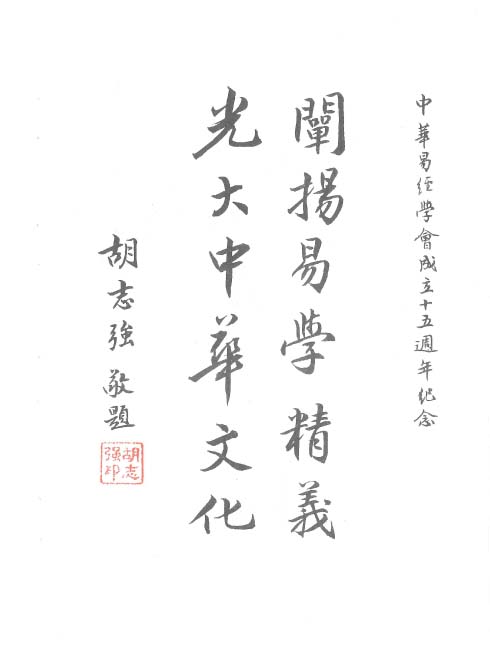 中華易經學會成立十五週年紀念
闡揚易學精義
光大中華文化
胡志強 敬題
胡志
強印